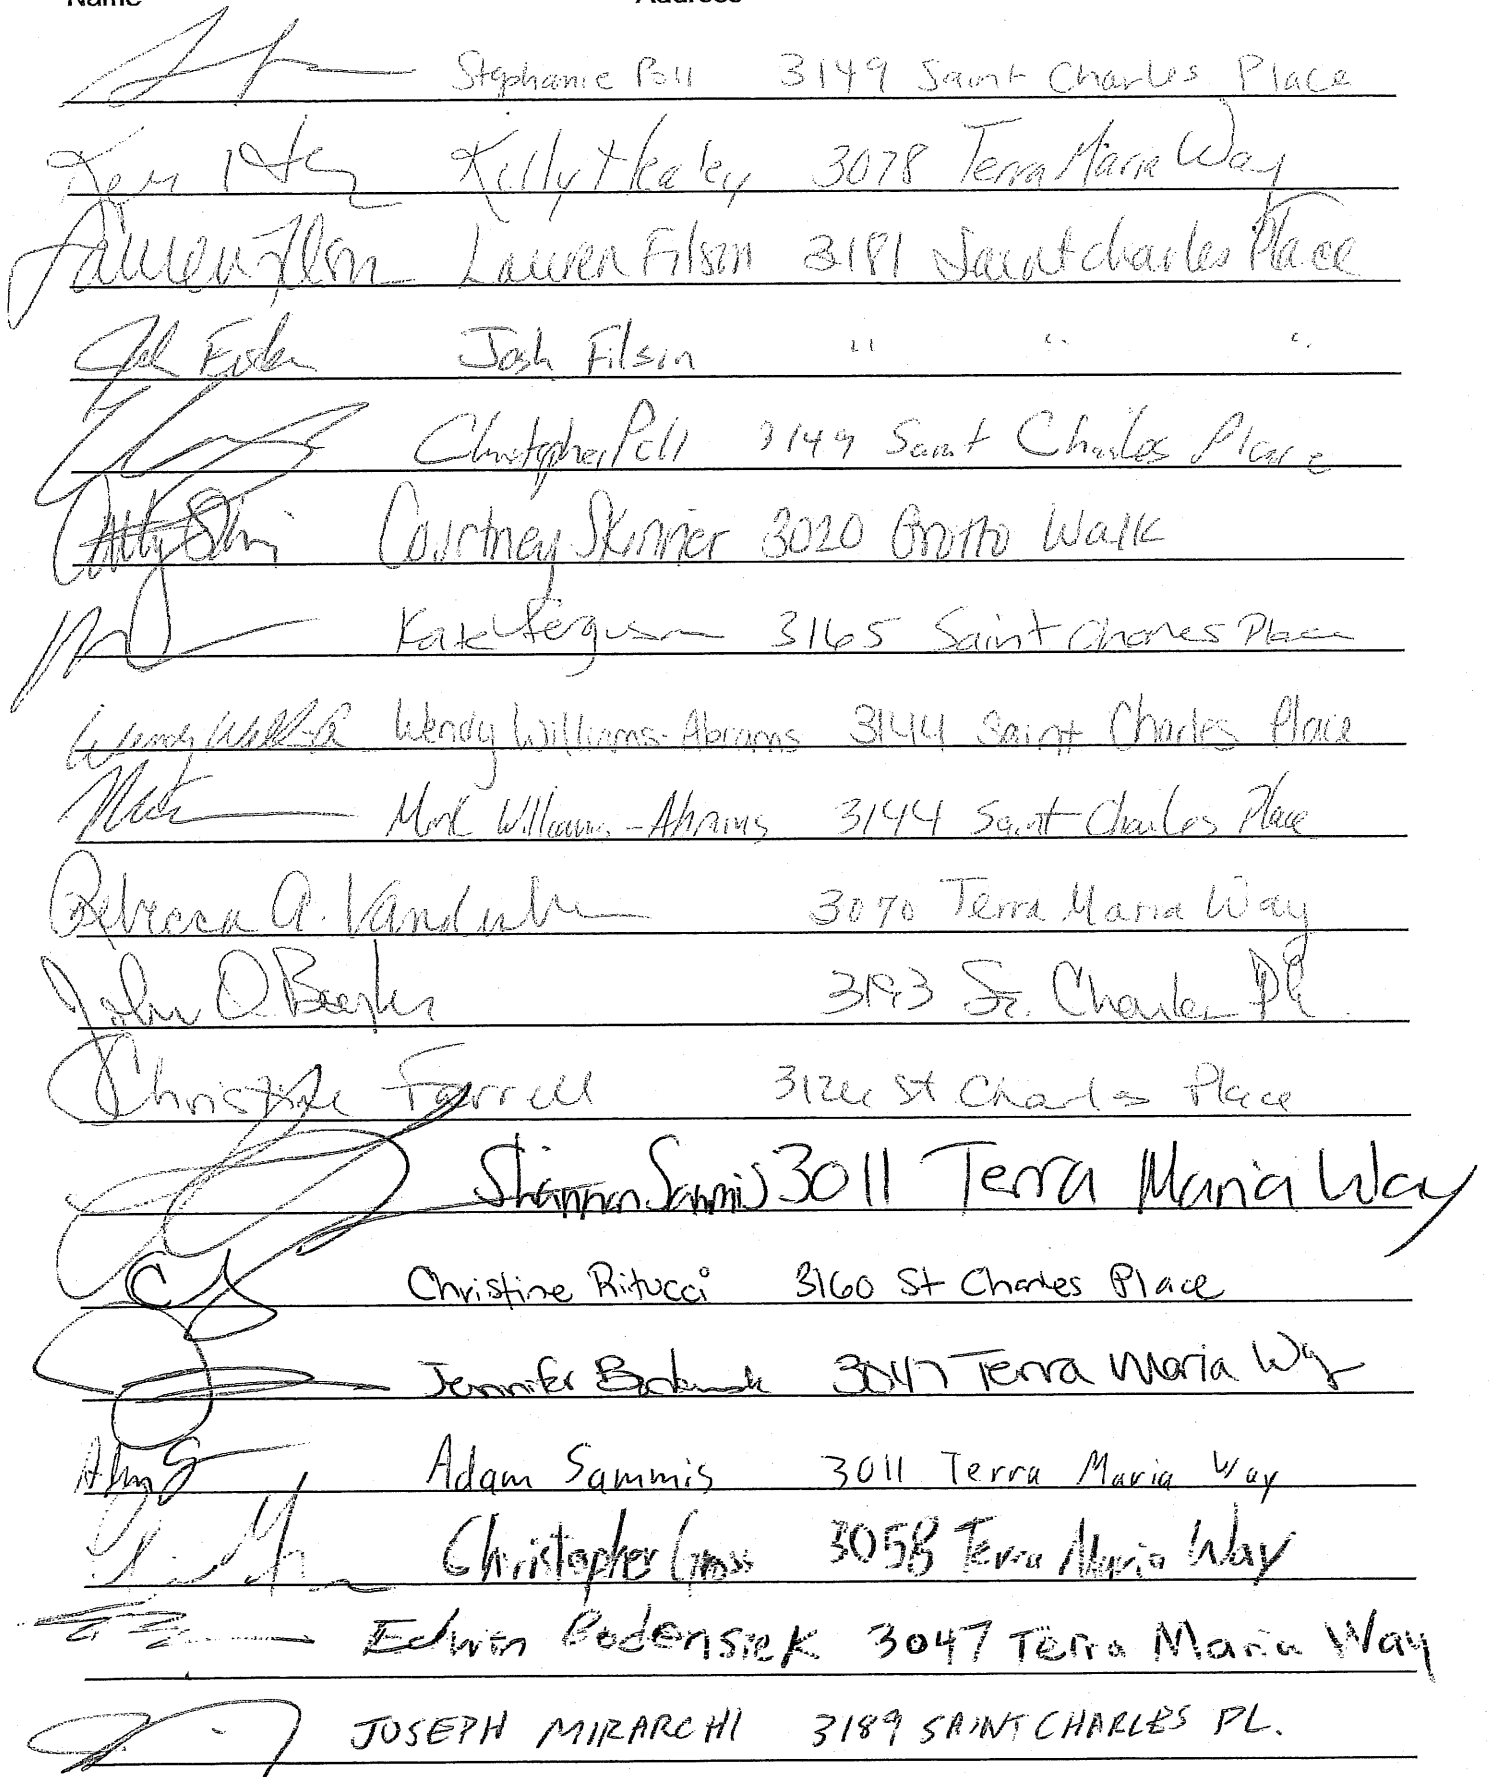 Name Address
Stephanie Poll 3149 Saint Charles Place
Kelly Healey 3078 Terra Maria Way
Lauren Filson Lauren Filson 3181 Saint charles Place
Josh Filson " " "
Christopher Poll 3149 Saint Charles Place
Courtney Skinner 3020 Grotto Walk
Kate Ferguson 3165 Saint Charles Place
Wendy Williams-Abrams 3144 Saint Charles Place
Mark Williams-Abrams 3144 Saint Charles Place
Rebecca A. 3070 Terra Maria Way
John O. 3193 St. Charles Pl.
Christine Farrell St Charles Place
Shannon Sammis 3011 Terra Maria Way
Christine Ritucci 3160 St Charles Place
Jennifer 3047 Terra Maria Way
Adam Sammis 3011 Terra Maria Way
Christopher Gross 3058 Terra Maria Way
Edwin Bodensiek 3047 Terra Maria Way
JOSEPH MIRARCHI 3189 SAINT CHARLES PL.